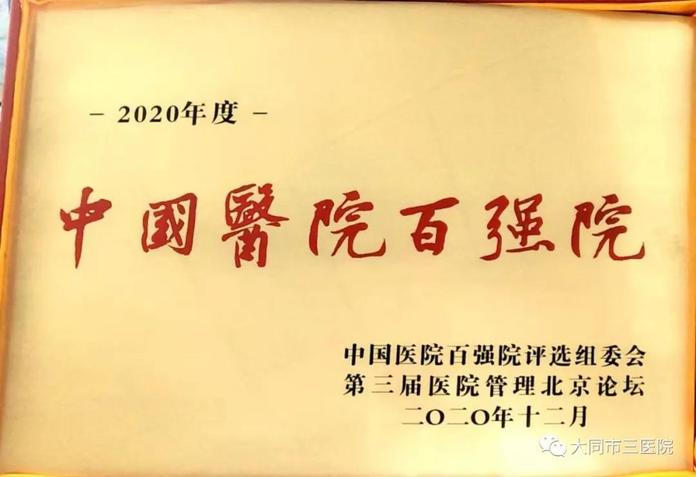 - 2020年度 -
中國醫院百强院
中国医院百强院评选组委会
第三届医院管理北京论坛
二〇二〇年十二月
大同市三医院